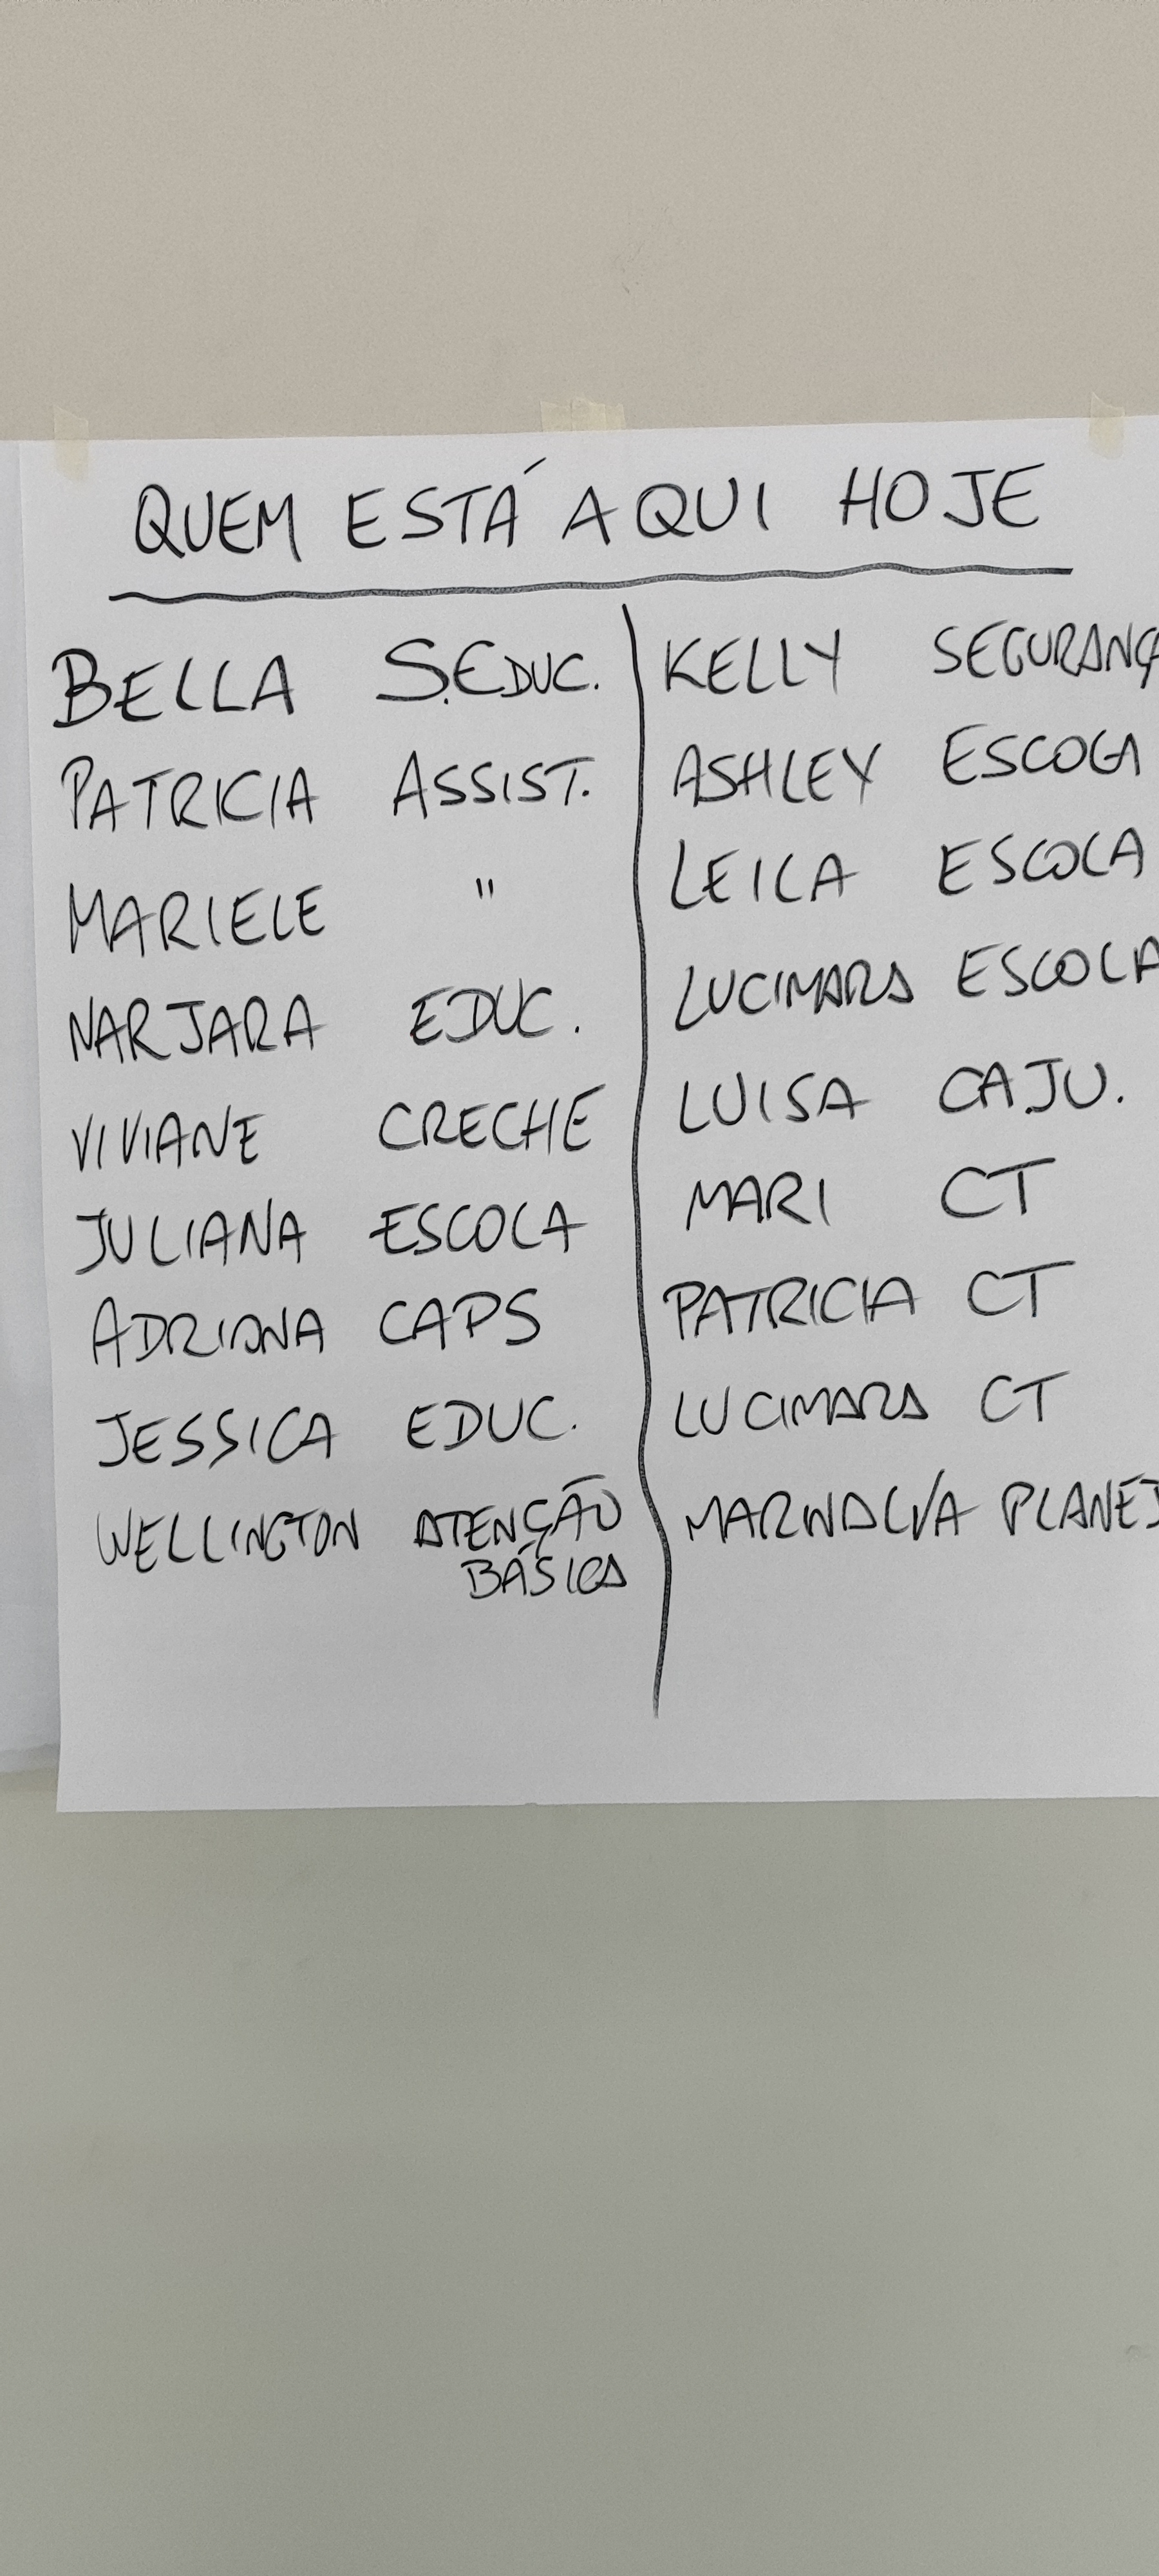 QUEM ESTÁ AQUI HOJE
BELLA S.EDUC.
PATRICIA ASSIST.
MARIELE "
NARJARA EDUC.
VIVIANE CRECHE
JULIANA ESCOLA
ADRIANA CAPS
JESSICA EDUC.
WELLINGTON ATENÇÃO
BÁSICA
KELLY SEGURANÇ
ASHLEY ESCOLA
LEILA ESCOLA
LUCIMARA ESCOLA
LUISA CAJU.
MARI CT
PATRICIA CT
LUCIMARA CT
MARINALVA PLANEJ